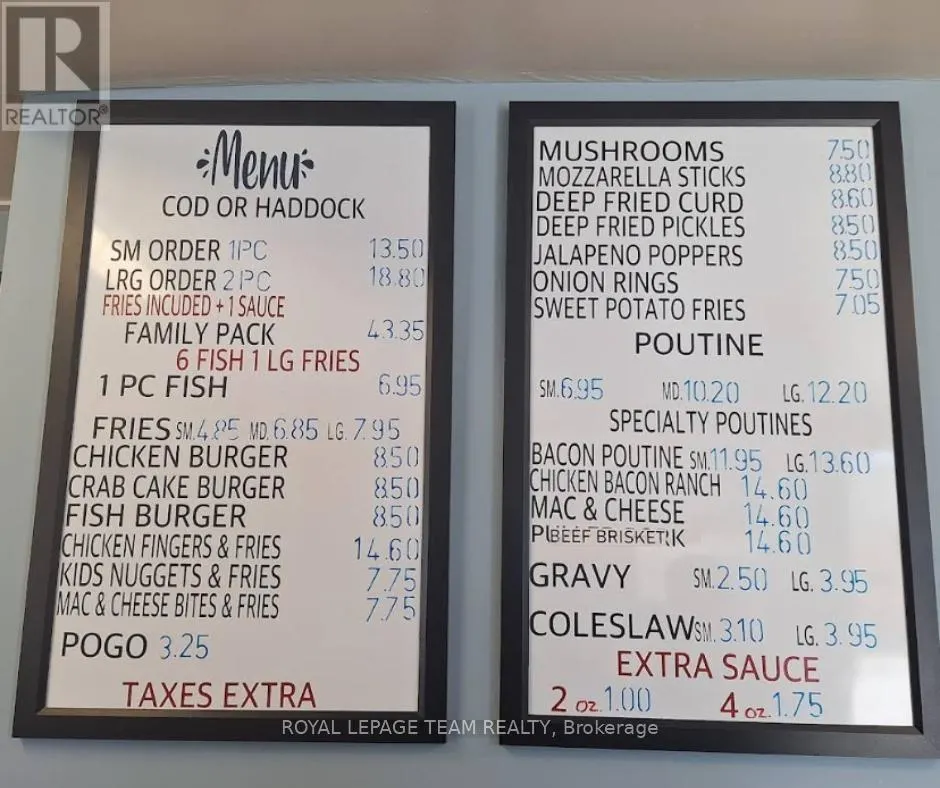 R
REALTOR®
Menu
COD OR HADDOCK
SM ORDER 1PC 13.50
LRG ORDER 2PC 18.80
FRIES INCLUDED + 1 SAUCE
FAMILY PACK 43.35
6 FISH 1 LG FRIES
1 PC FISH 6.95
FRIES SM. 4.85 MD. 6.85 LG. 7.95
CHICKEN BURGER 8.50
CRAB CAKE BURGER 8.50
FISH BURGER 8.50
CHICKEN FINGERS & FRIES 14.60
KIDS NUGGETS & FRIES 7.75
MAC & CHEESE BITES & FRIES 7.75
POGO 3.25
TAXES EXTRA
MUSHROOMS 7.50
MOZZARELLA STICKS 8.80
DEEP FRIED CURD 8.60
DEEP FRIED PICKLES 8.50
JALAPENO POPPERS 8.50
ONION RINGS 7.50
SWEET POTATO FRIES 7.05
POUTINE
SM. 6.95 MD. 10.20 LG. 12.20
SPECIALTY POUTINES
BACON POUTINE SM. 11.95 LG. 13.60
CHICKEN BACON RANCH 14.60
MAC & CHEESE 14.60
BEEF BRISKET 14.60
GRAVY SM. 2.50 LG. 3.95
COLESLAW SM. 3.10 LG. 3.95
EXTRA SAUCE
2 oz. 1.00 4 oz. 1.75
ROYAL LEPAGE TEAM REALTY, Brokerage